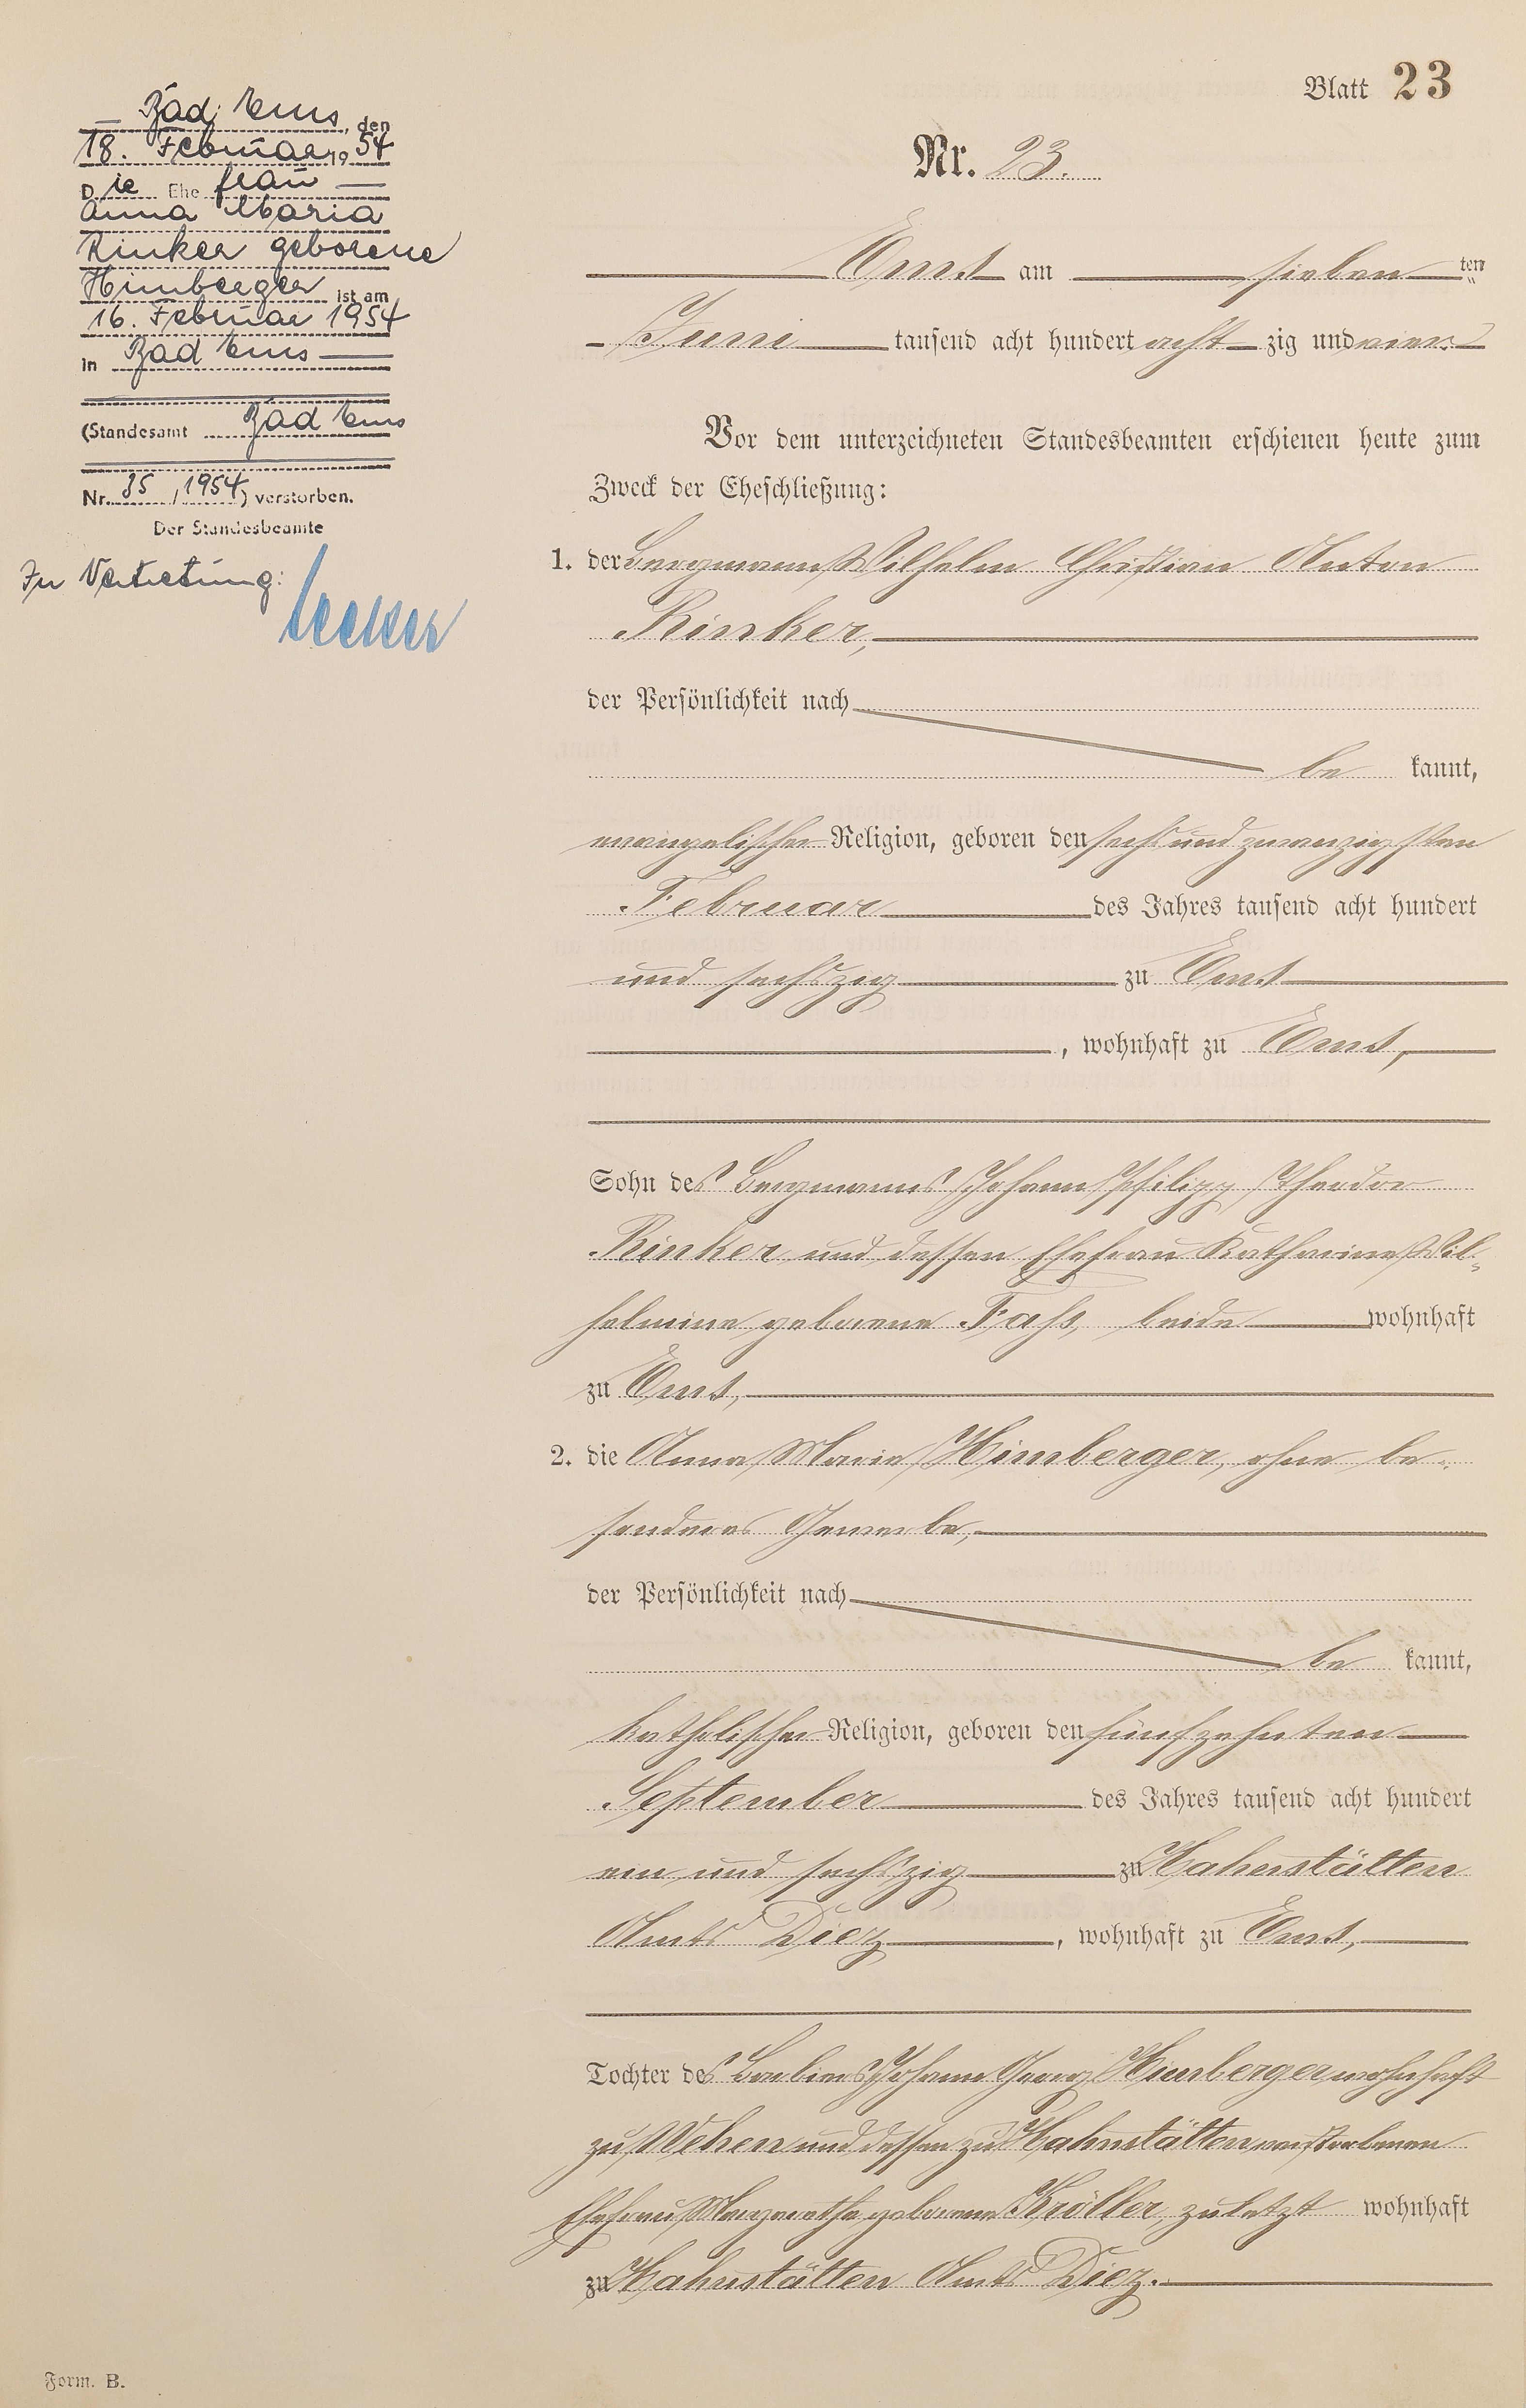 Blatt 23
Nr. 23.
Bad Ems, den
18. Februar 1954
Die Ehefrau
Anna Maria
Rinker geborene
Himberger ist am
16. Februar 1954
in Bad Ems
(Standesamt Bad Ems
Nr. 35/1954) verstorben.
Der Standesbeamte
In Vertretung:
Ems am sieben ten
Juni tausend acht hundert acht zig und vier
Vor dem unterzeichneten Standesbeamten erschienen heute zum
Zweck der Eheschließung:
1. der Bergmann Wilhelm Christian Anton
Rinker,
der Persönlichkeit nach
be kannt,
evangelischer Religion, geboren den sechs und zwanzigsten
Februar des Jahres tausend acht hundert
und sechszig zu Ems
, wohnhaft zu Ems,
Sohn des Bergmanns Johann Philipp Theodor
Rinker und dessen Ehefrau Katharine Wil-
helmine geborene Fass, beide wohnhaft
zu Ems,
2. die Anna Maria Himberger, ohne be-
sonderes Gewerbe,
der Persönlichkeit nach
be kannt,
katholischer Religion, geboren den fünfzehnten
September des Jahres tausend acht hundert
ein und sechszig zu Hahnstätten
Amts Diez, wohnhaft zu Ems,
Tochter des Johann Georg Himberger wohnhaft
zu Wehen und dessen zu Hahnstätten verstorbenen
Ehefrau Margarethe geborene Kröller, zuletzt wohnhaft
zu Hahnstätten Amts Diez.
Form. B.